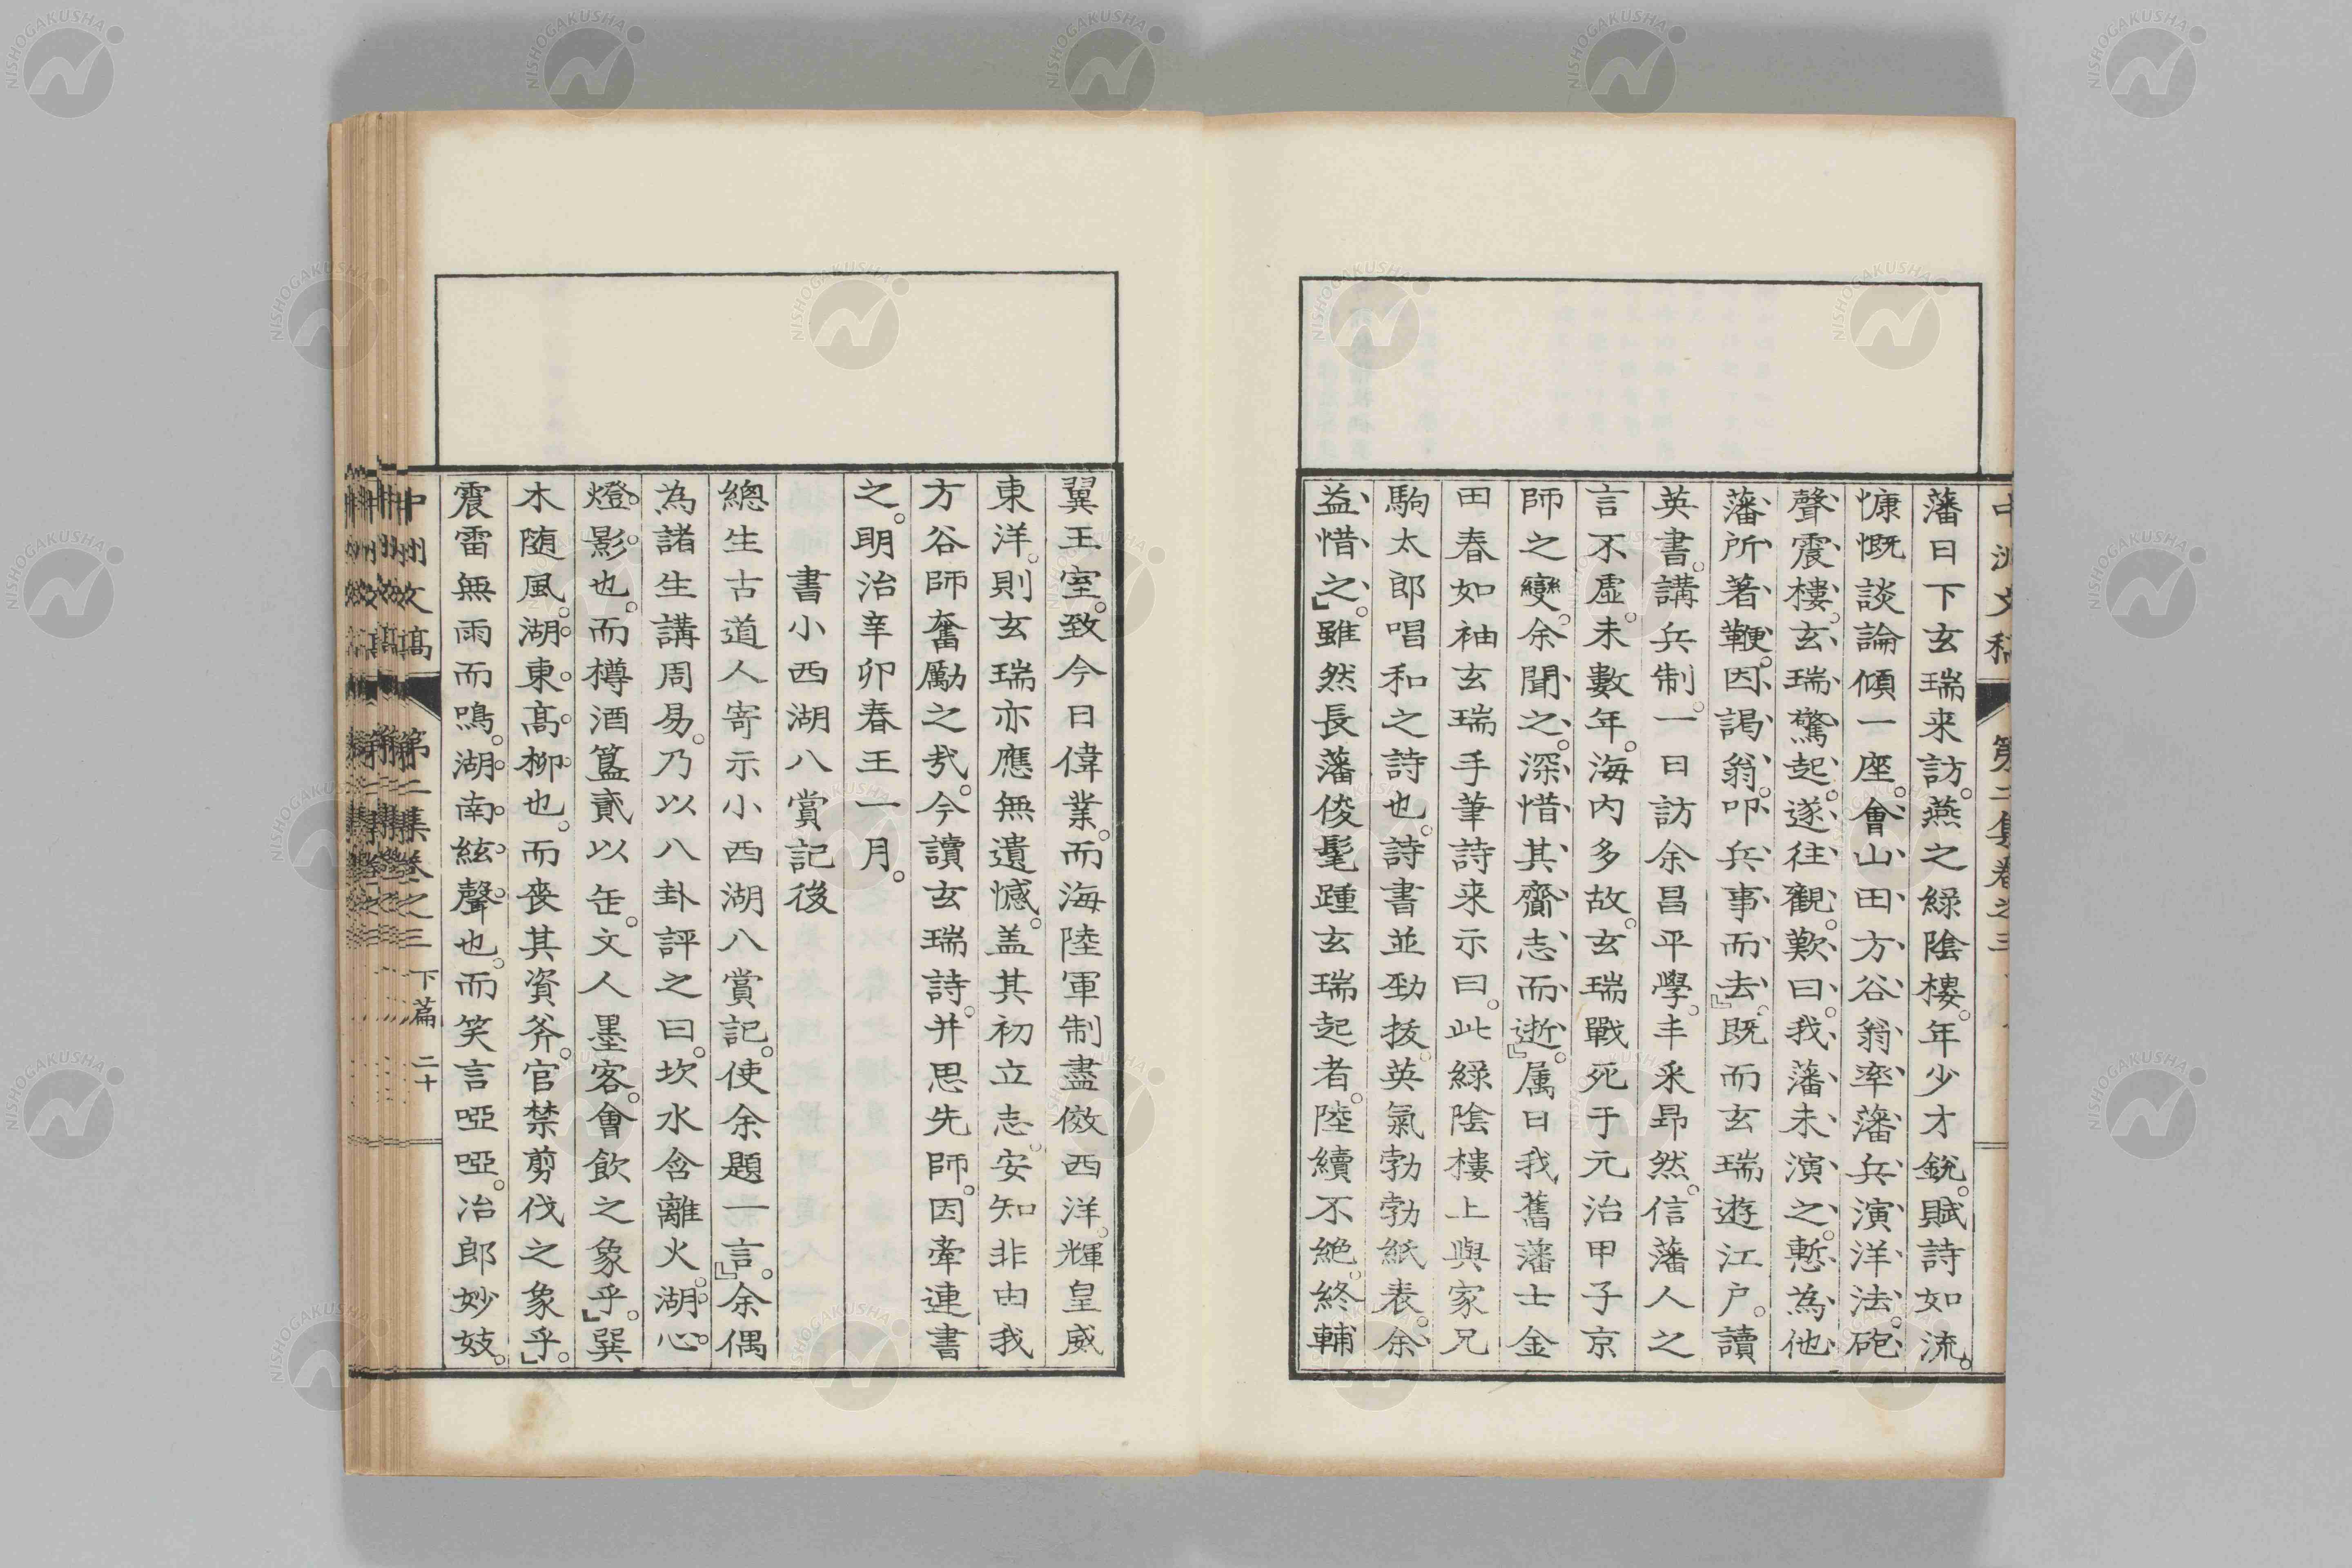 藩日下玄瑞来訪。燕之緑陰樓。年少才銳。賦詩如流。
慷慨談論傾一座。會山田方谷翁率藩兵演洋法。砲
聲震樓。玄瑞驚起。遂往觀。歎曰。我藩未演之。慙為他
藩所著鞭。因謁翁。叩兵事而去。』既而玄瑞遊江戸。讀
英書。講兵制。一日訪余昌平學。丰采昻然。信藩人之
言不虚。未數年。海内多故。玄瑞戰死于元治甲子京
師之變。余聞之。深惜其齎志而逝。』属日我舊藩士金
田春如袖玄瑞手筆詩来示曰。此緑陰樓上與家兄
駒太郎唱和之詩也。詩書並勁拔。英氣勃勃紙表。余
益惜之。』雖然長藩俊髦踵玄瑞起者。陸續不絶。終輔
第二集卷之三
翼王室。致今日偉業。而海陸軍制盡倣西洋。輝皇威
東洋。則玄瑞亦應無遺憾。盖其初立志。安知非由我
方谷師奮勵之㢤。今讀玄瑞詩。并思先師。因牽連書
之。明治辛卯春王一月。
書小西湖八賞記後
總生古道人寄示小西湖八賞記。使余題一言。』余偶
為諸生講周易。乃以八卦評之曰。坎水含離火。湖心
燈影也。而樽酒簋貳以缶。文人墨客。會飲之象乎。』巽
木随風。湖東髙柳也。而喪其資斧。官禁剪伐之象乎。』
震雷無雨而鳴。湖南絃聲也。而笑言啞啞。冶郎妙妓。
中洲文稾 第二集卷之三 下篇 二十